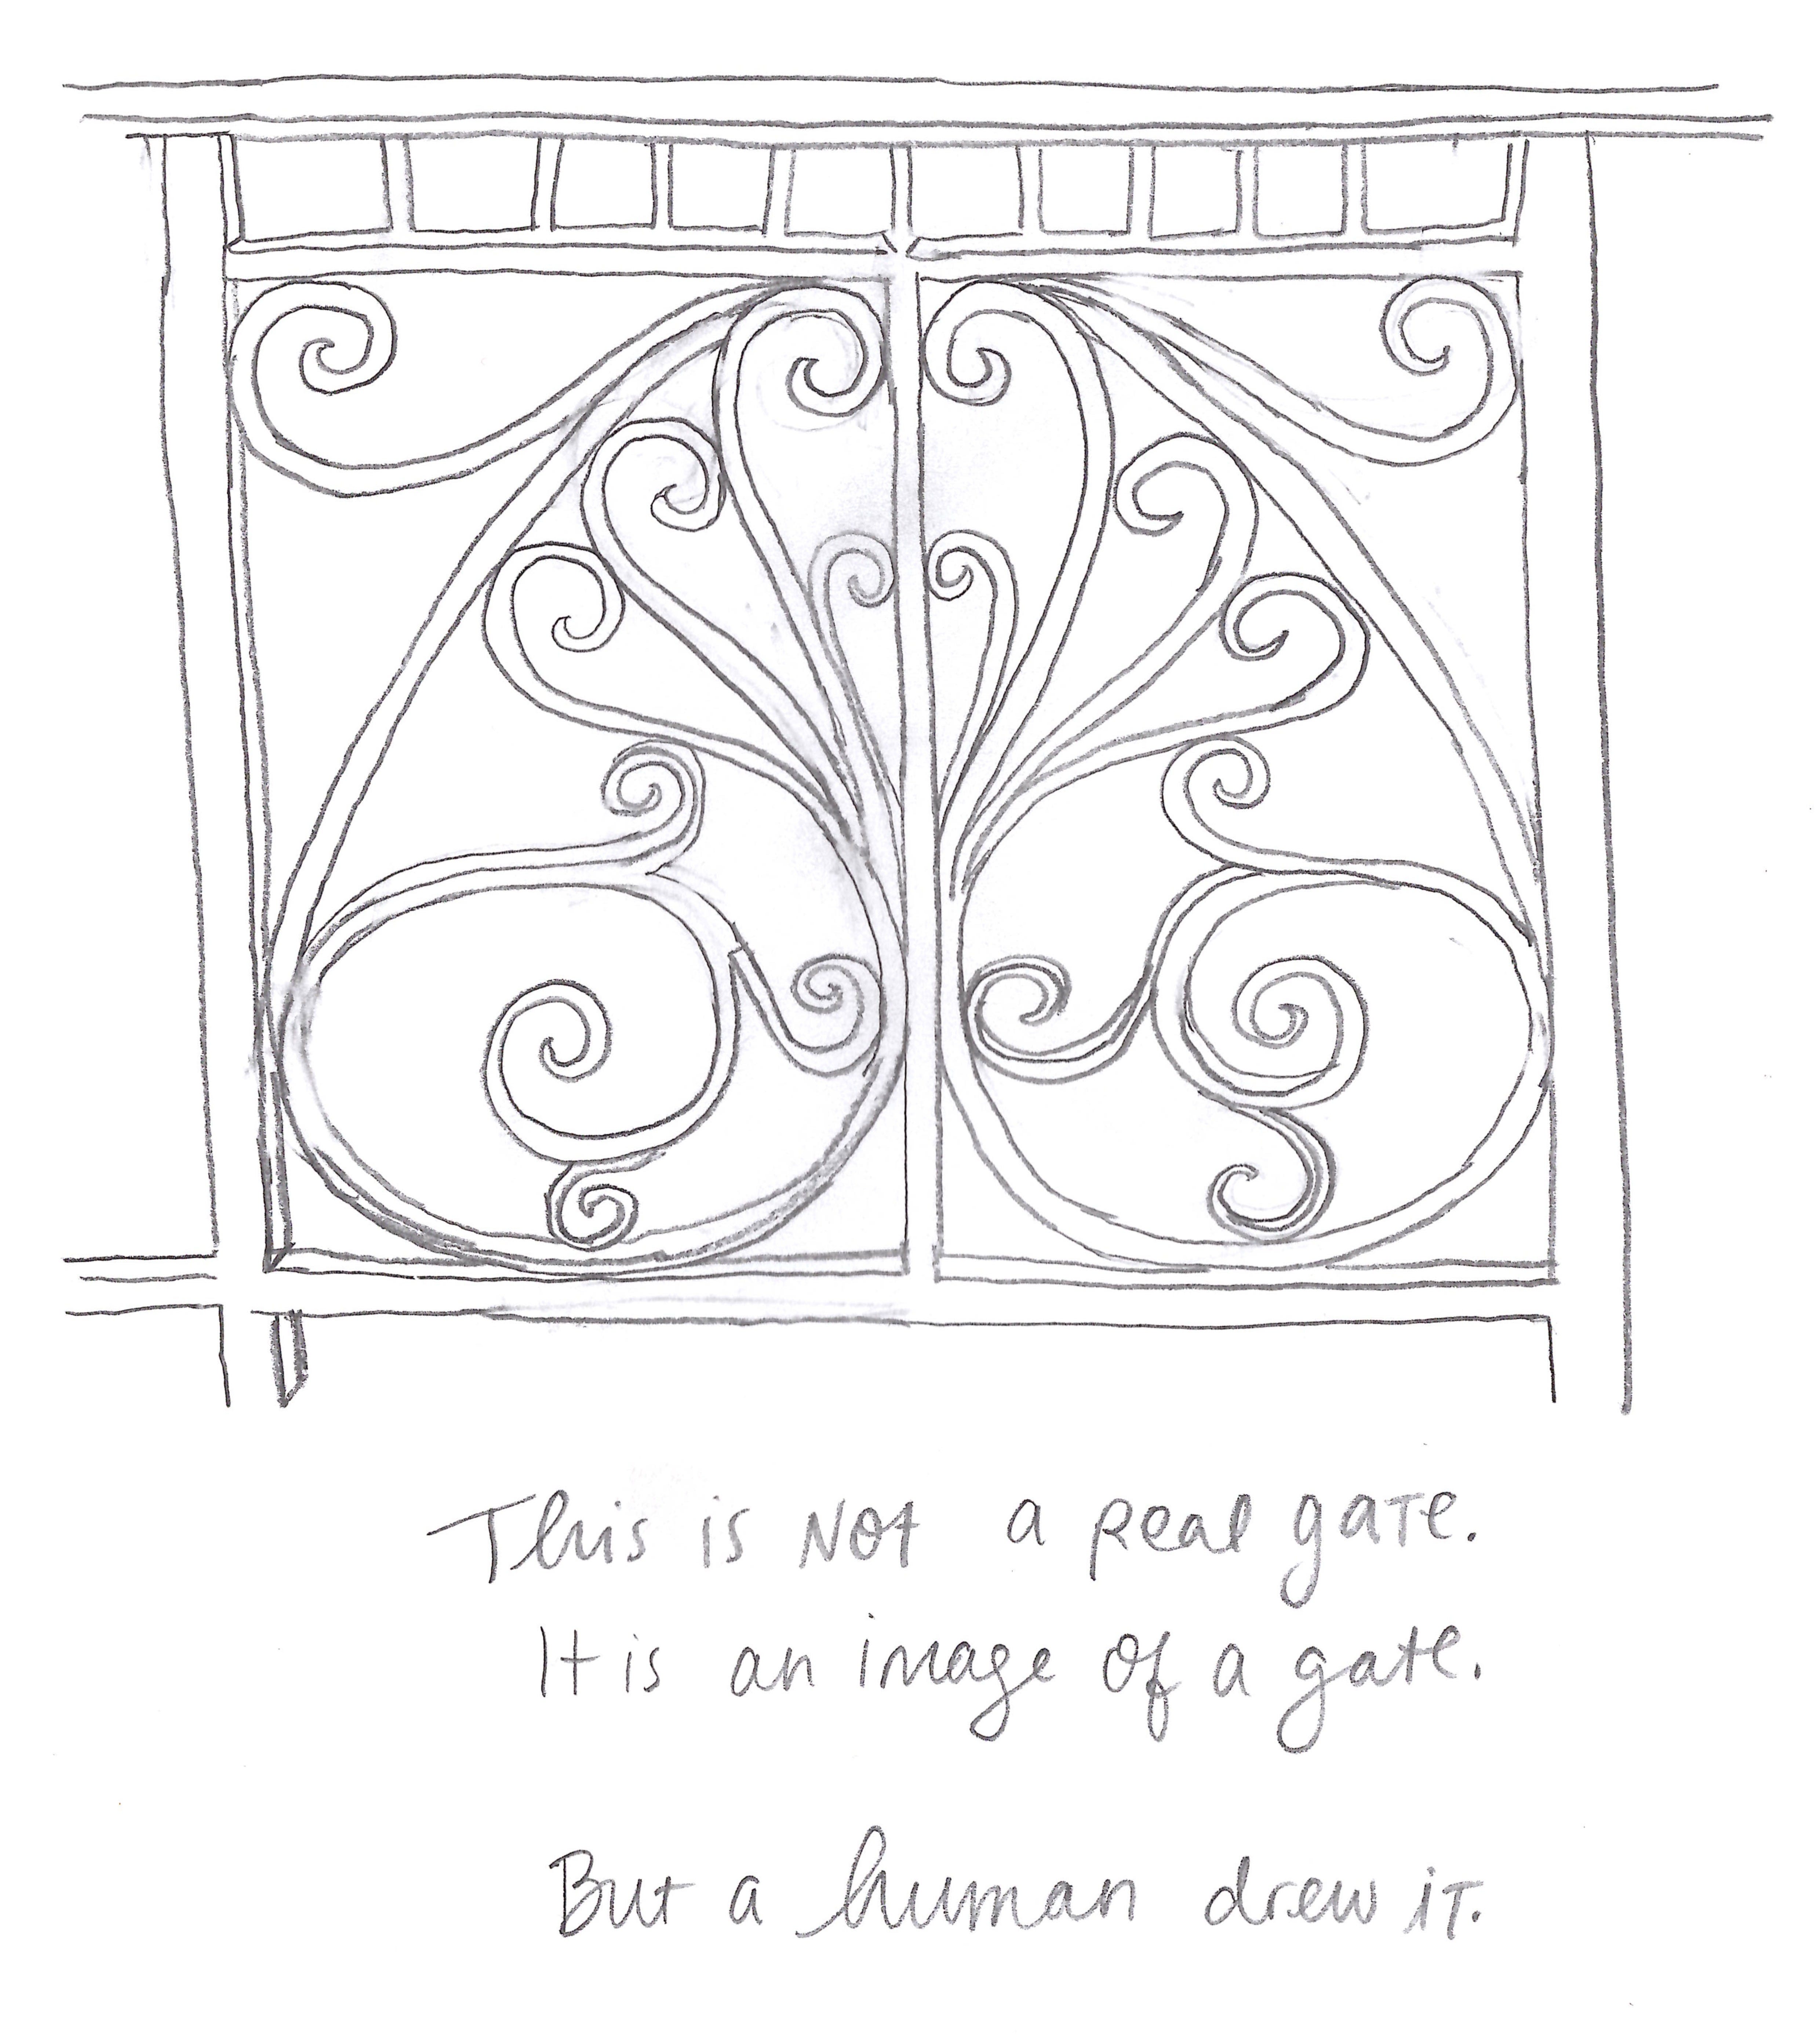 This is Not a real gate.
It is an image of a gate.
But a human drew it.